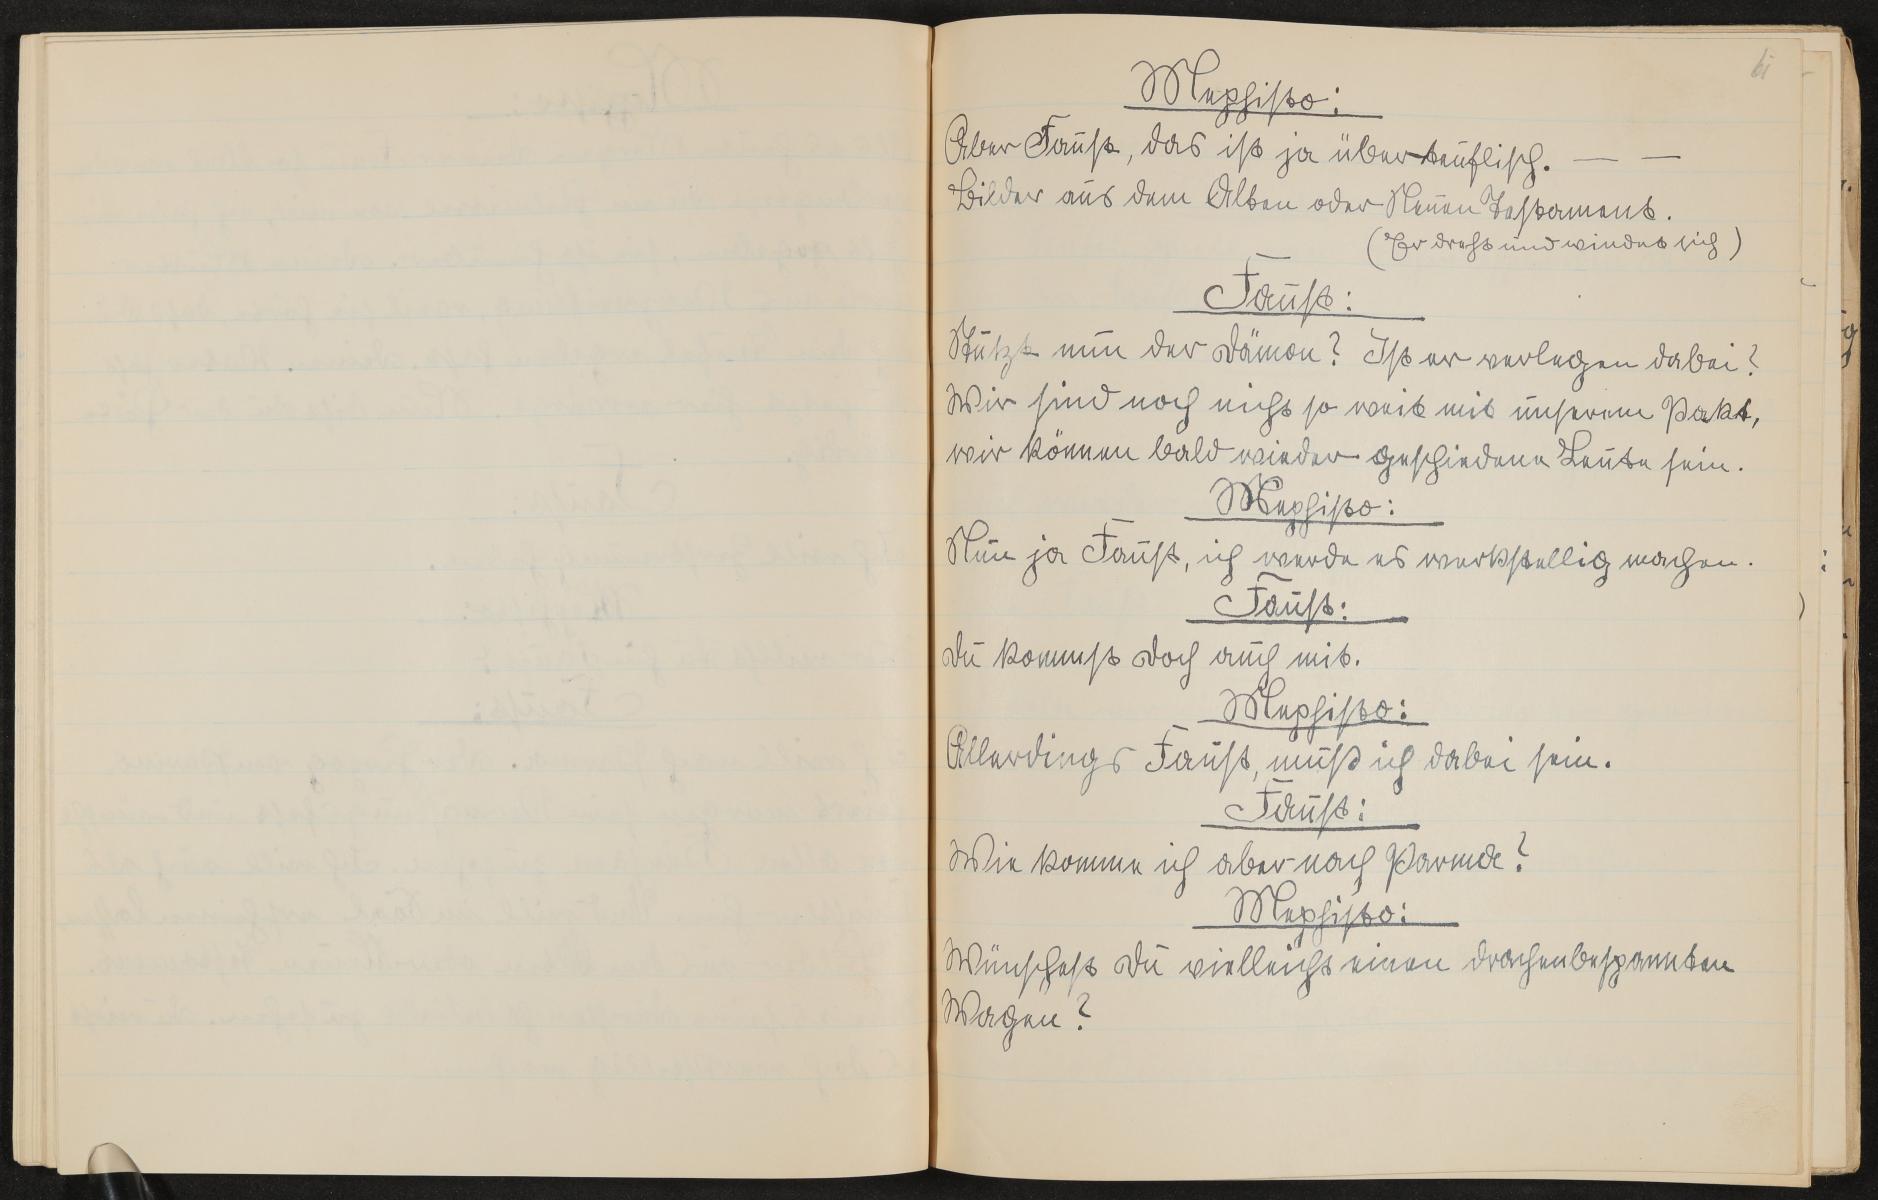 Mephisto:
Aber Faust, das ist ja überteuflisch. — —
Bilder aus dem Alten oder Neuen Testament.
(Er dreht und windet sich)
Faust:
Stutzt nun der Dämon? Ist er verlegen dabei?
Wir sind noch nicht so weit mit unserem Pakt,
wir können bald wieder geschiedene Leute sein.
Mephisto:
Nun ja Faust, ich werde es werkstellig machen.
Faust:
Du kommst doch auch mit.
Mephisto:
Allerdings Faust, muß ich dabei sein.
Faust:
Wie komme ich aber nach Parma?
Mephisto:
Wünschest Du vielleicht einen drachenbespannten
Wagen?